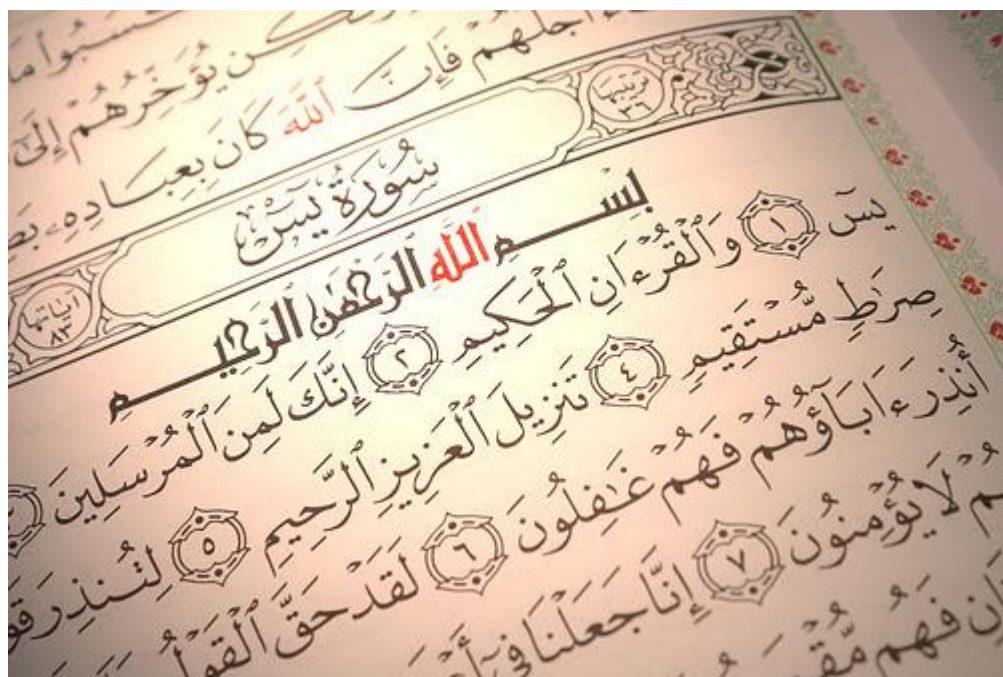 كسبوا ما
ولكن يؤخرهم إلى
أجلهم فإن الله كان بعباده بص
ترتيبها ٣٦ سُورَةُ يسٓ آياتها ٨٣
بِسْمِ ٱللَّهِ ٱلرَّحْمَٰنِ ٱلرَّحِيمِ
يسٓ ١ وَٱلْقُرْءَانِ ٱلْحَكِيمِ ٢ إِنَّكَ لَمِنَ ٱلْمُرْسَلِينَ ٣
صِرَٰطٍ مُّسْتَقِيمٍ ٤ تَنزِيلَ ٱلْعَزِيزِ ٱلرَّحِيمِ ٥ لِتُنذِرَ قَوْ
أُنذِرَ ءَابَآؤُهُمْ فَهُمْ غَٰفِلُونَ ٦ لَقَدْ حَقَّ ٱلْقَوْلُ
هُمْ لَا يُؤْمِنُونَ ٧ إِنَّا جَعَلْنَا فِىٓ أَ
ان فَهُم مُّقْمَ